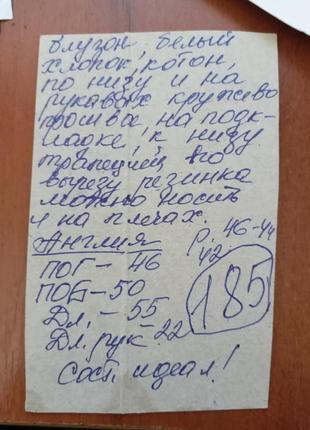 блузон. белый
хлопок, котон,
по низу и на
рукавах кружево
прошва, на подк-
ладке, к низу
трапецией, по
вырезу резинка
можно носить
и на плечах.
Англия Р. 46-44
42
ПОГ - 46
ПОБ - 50
Дл. - 55
Дл. рук - 22
185
Сост. идеал!